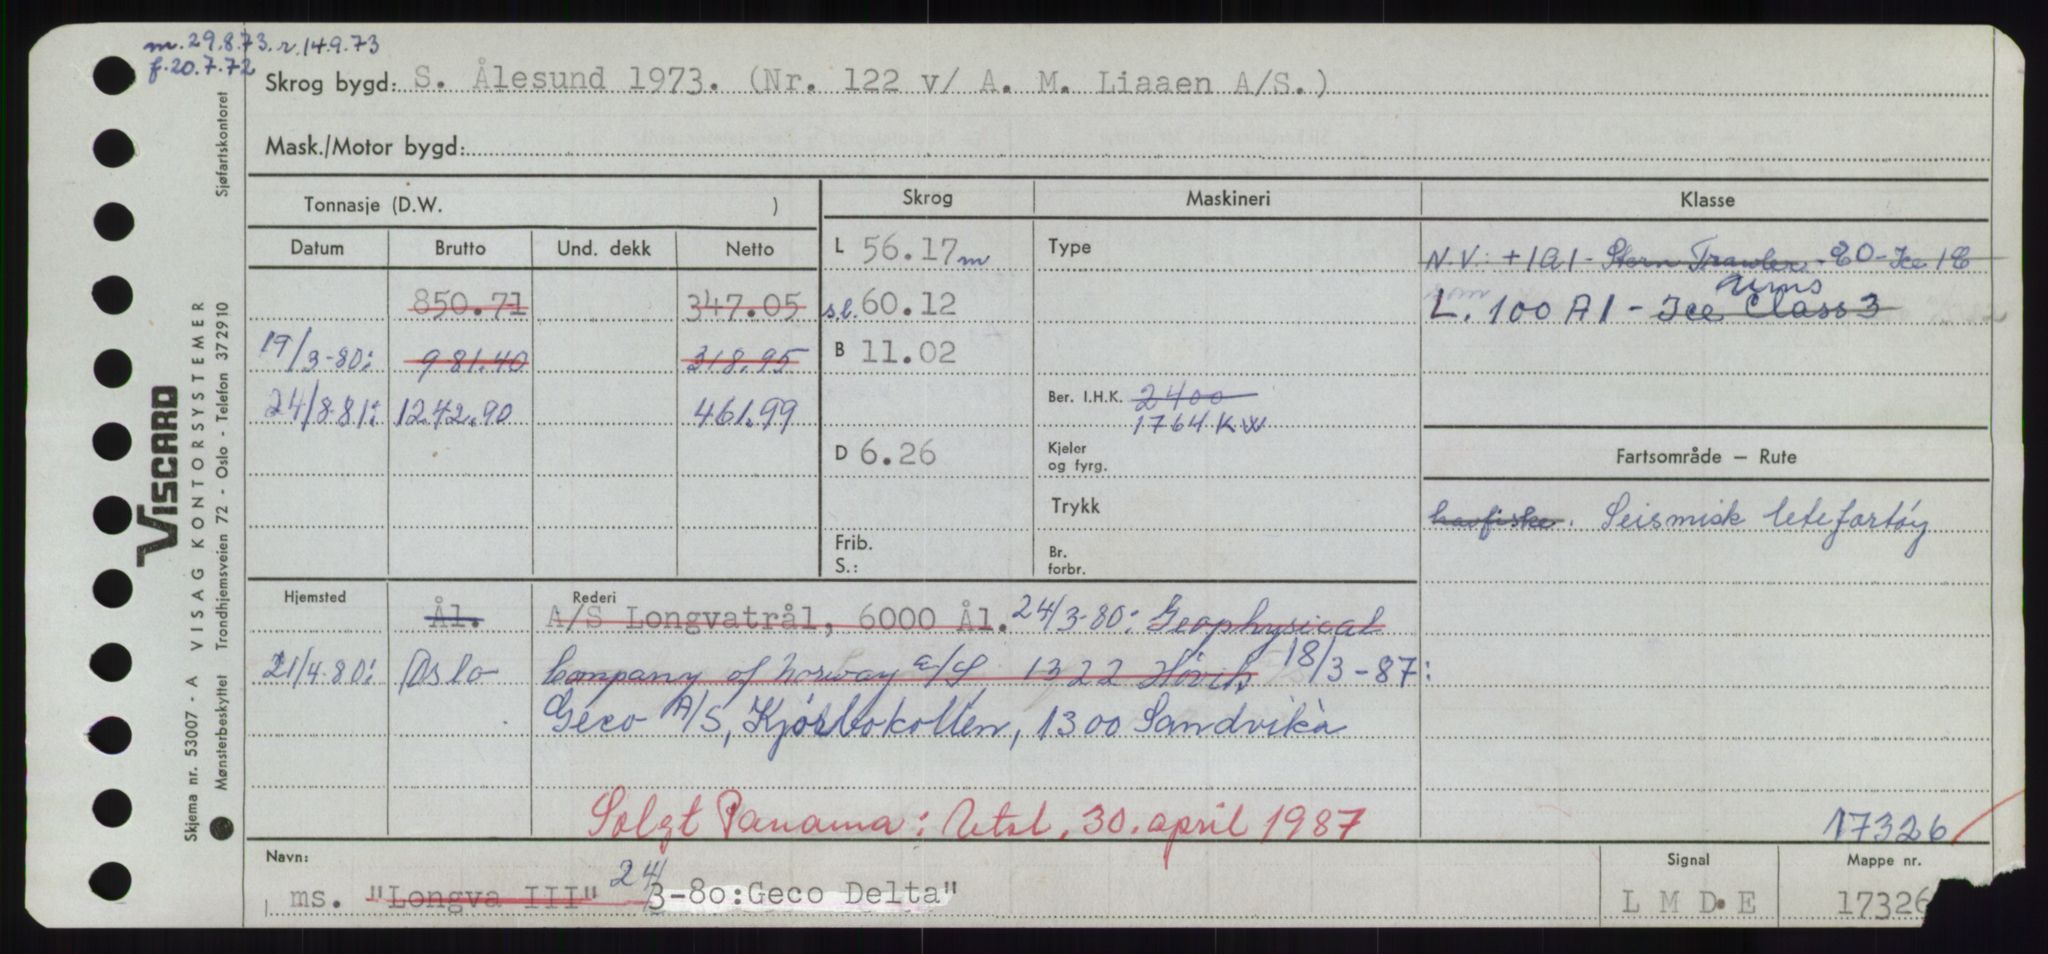 m. 29.8.73. r. 14.9.73
f. 20.7.72
Skrog bygd: S. Ålesund 1973. (Nr. 122 v/ A. M. Liaaen A/S.)
Mask./Motor bygd:
Tonnasje (D.W. )
Skrog
Maskineri
Klasse
Datum
Brutto
Und. dekk
Netto
L 56.17 m
Type
N.V. +1A1 - Stern Trawler - E0 - Ice 1C
850.71
347.05
s.l. 60.12
L. 100 A1 - Ice Class 3
19/3-80:
981.40
318.95
B 11.02
24/8-81:
1242.90
461.99
Ber. I.H.K. 2400
1764 KW
D 6.26
Kjeler og fyrg.
Fartsområde — Rute
Trykk
havfiske. Seismisk letefartøy
Frib.
S.:
Br. forbr.
Hjemsted
Rederi
Ål.
A/S Longvatrål, 6000 Ål. 24/3-80: Geophysical
21/4-80: Oslo
Company of Norway A/S 1322 Høvik 18/3-87:
Geco A/S, Kjørbokollen, 1300 Sandvika
Solgt Panama: Utsl. 30. april 1987
17326
Navn:
Signal
Mappe nr.
ms. "Longva III" 24/3-80: Geco Delta"
L M D E
17326
Skjema nr. 53007 - A VISAG KONTORSYSTEMER
Mønsterbeskyttet Trondhjemsveien 72 - Oslo - Telefon 372910 Sjøfartskontoret
VISCARD